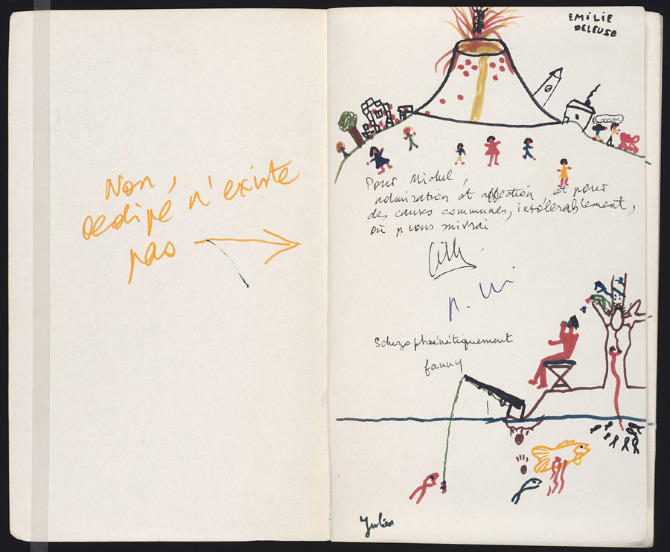 Non,
oedipe n'existe
pas
EMILIE
DELEUSE
Pour Michel,
admiration et affection et pour
des causes communes, intolérablement,
où je vous suivrai
Gilles
Schizophrénétiquement
fanny
Julien